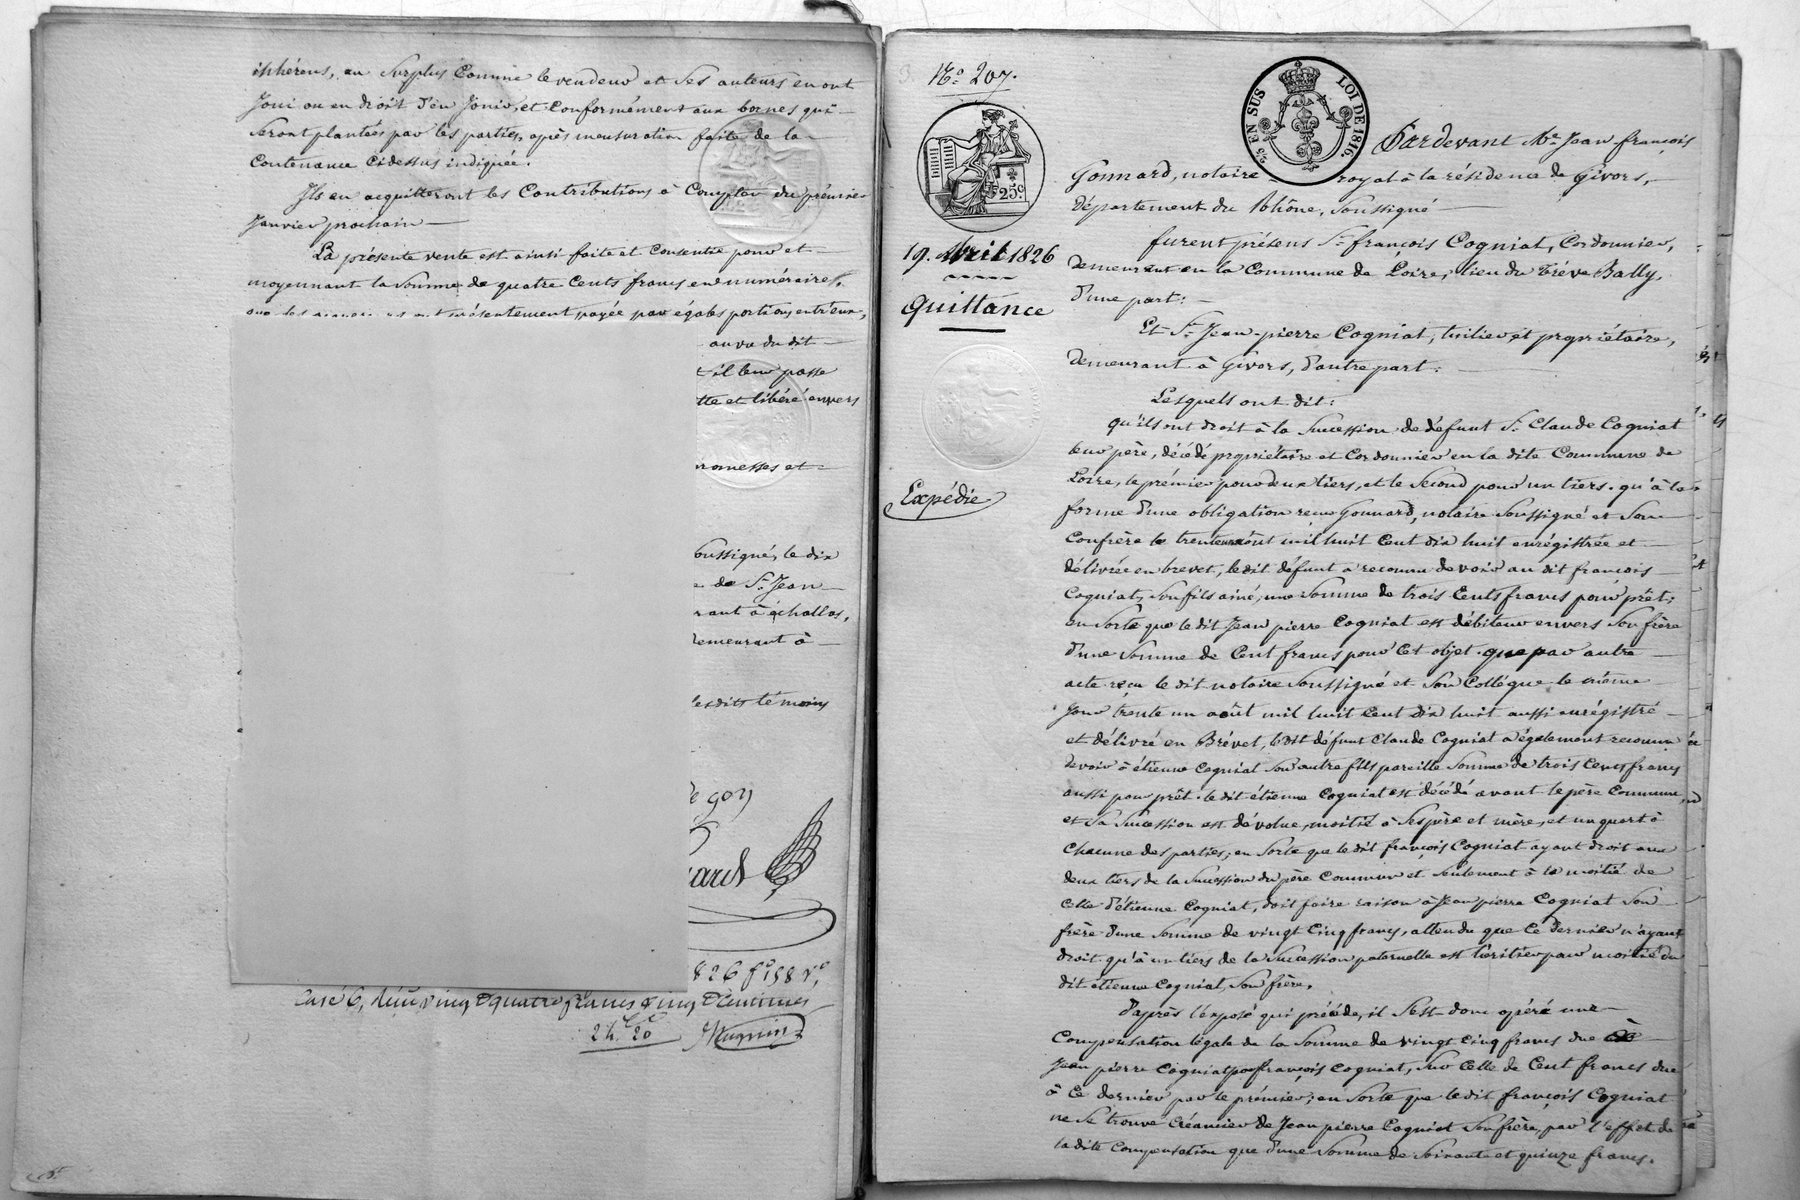 inhérens, au surplus Comme le vendeur et ses auteurs en ont
Joui ou eu droit d'en Jouir, et conformément aux bornes qui
seront plantées par les parties, après mensuration faite de la
contenance cidessus indiquée.
Ils en acquitteront les Contributions à Compter du prémier
Janvier prochain
La présente vente est ainsi faite et consentie pour et
moyennant la somme de quatre Cents francs en numéraire,
présentement payée par égales portions entr'eux,
au vu du dit
il leur passe
et libéré envers
promesses et
soussigné, le dix
de Sr. Jean
à échallas,
demeurant à
lesdits témoins
de gory
826 fo 198 Vo,
Case 6, Reçu vingt quatre francs vingt Centimes
24 fr 20c
No. 207.
25 EN SUS
LOI DE 1816.
25c
19. Avril 1826
Quittance
Expédié
Pardevant Me. Jean françois
Gonnard, notaire royal à la résidence de Givors,
département du Rhône, soussigné
furent présens Sr. françois Cogniat, Cordonnier,
demeurant en la Commune de Loire, lieu du Trève Bally,
d'une part:
Et Sr. Jean-pierre Cogniat, tuilier et propriétaire,
demeurant à Givors, d'autre part:
Lesquels ont dit:
qu'ils ont droit à la Succession de défunt Sr. Claude Cogniat
leur père, décédé propriétaire et Cordonnier en la dite Commune de
Loire, le prémier pour deux tiers, et le Second pour un tiers. qu'à la
forme d'une obligation reçue Gonnard, notaire soussigné et son
Confrère le trente un août mil huit Cent dix huit enrégistrée et
délivrée en brevet, le dit défunt a reconnu devoir au dit françois
Cogniat, son fils ainé, une somme de trois Cents francs pour prêt;
en sorte que le dit Jean pierre Cogniat est débiteur envers son frère
d'une somme de Cent francs pour Cet objet. que par autre
acte reçu le dit notaire soussigné et son Collégue le même
Jour trente un août mil huit Cent dix huit aussi enrégistré
et délivré en Brévet, le dit défunt Claude Cogniat a également reconnu
devoir à étienne Cogniat son autre fils pareille somme de trois Cents francs
aussi pour prêt. le dit étienne Cogniat est décédé avant le père Commun,
et sa succession est dévolue, moitié à ses père et mère, et un quart à
Chacune des parties; en sorte que le dit françois Cogniat ayant droit aux
deux tiers de la succession du père Commun et seulement à la moitié de
Celle d'étienne Cogniat, doit faire raison à Jean pierre Cogniat son
frère d'une somme de vingt Cinq francs, attendu que Ce dernier n'ayant
droit qu'à un tiers de la succession paternelle est héritier pour moitié du
dit étienne Cogniat, son frère.
D'après l'exposé qui précéde, il s'est donc opéré une
Compensation légale de la somme de vingt Cinq francs due à
Jean pierre Cogniat par françois Cogniat, sur Celle de Cent francs due
à Ce dernier par le prémier; en sorte que le dit françois Cogniat
ne se trouve Créancier de Jean pierre Cogniat son frère, par l'effet de
la dite Compensation que d'une somme de soixante et quinze francs.